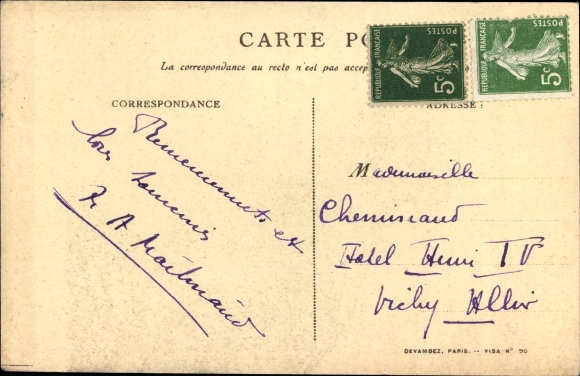 CARTE PO
La correspondance au recto n'est pas accep
REPUBLIQUE FRANÇAISE
POSTES
5c
REPUBLIQUE FRANÇAISE
POSTES
5c
CORRESPONDANCE
ADRESSE :
Remerciements et
bons souvenirs
Mademoiselle
Cheminaud
Hotel Henri IV
Vichy Allier
DEVAMBEZ, PARIS. — VISA N° 90